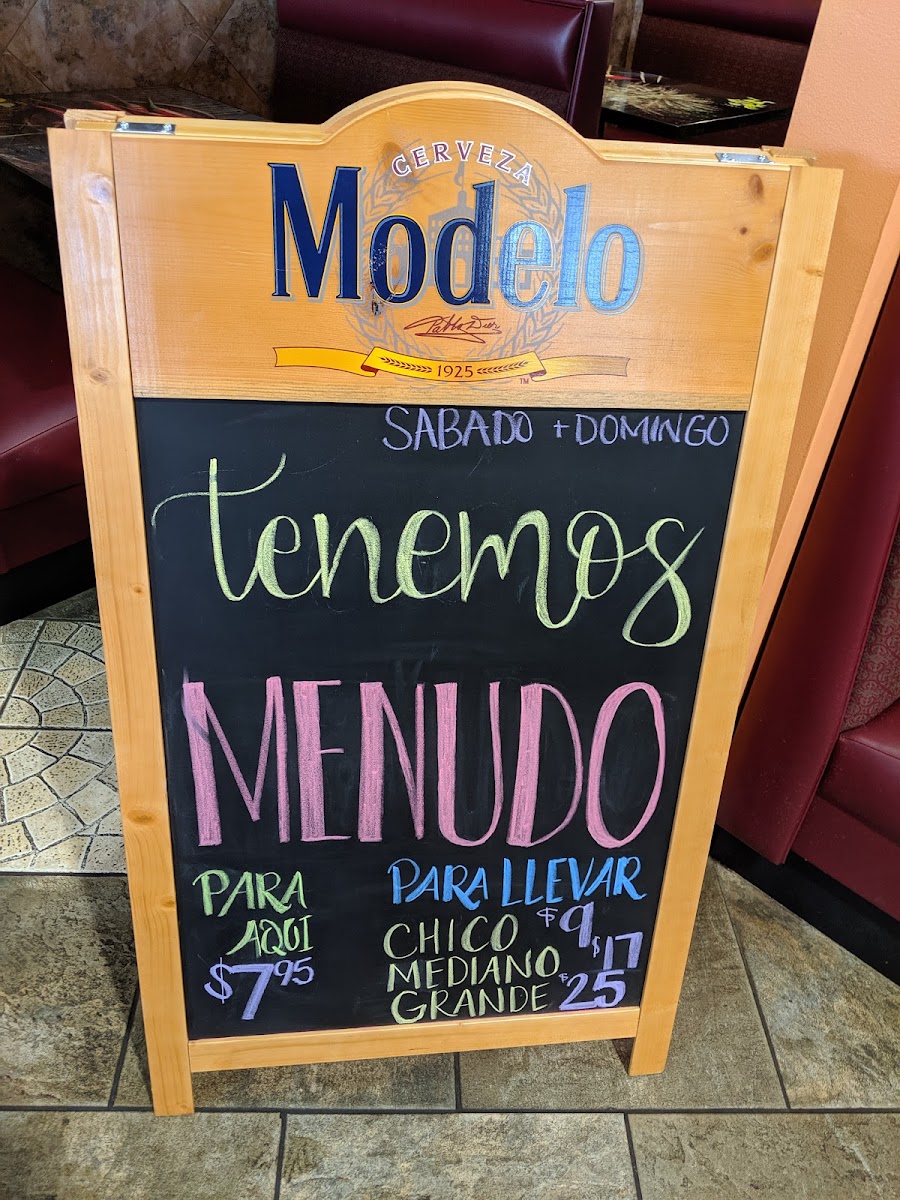 CERVEZA
Modelo
Pablo Diez
1925
TM
SABADO + DOMINGO
tenemos
MENUDO
PARA
AQUI
$7.95
PARA LLEVAR
CHICO $9
MEDIANO $17
GRANDE $25